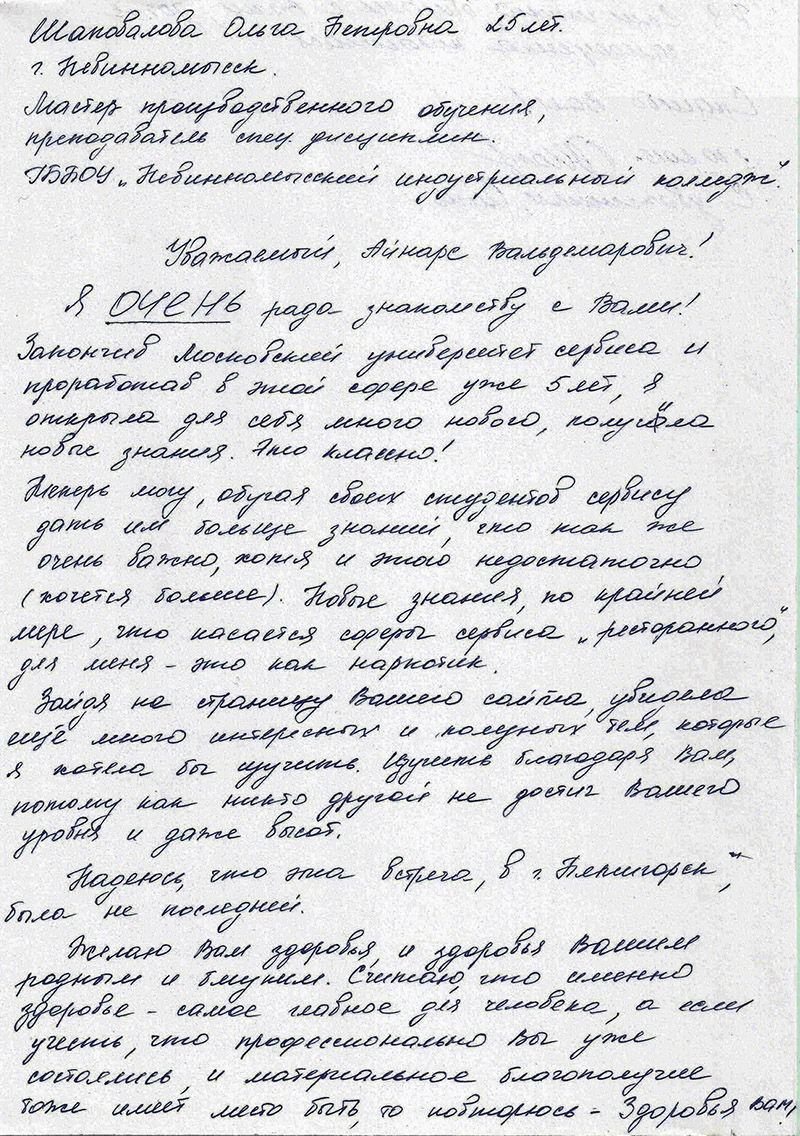 Шаповалова Ольга Петровна 25 лет.
г. Невинномысск.
Мастер производственного обучения,
преподаватель спец. дисциплин.
ГБПОУ „Невинномысский индустриальный колледж".
Уважаемый, Айнарс Вальдемарович!
Я ОЧЕНЬ рада знакомству с Вами!
Закончив Московский университет сервиса и
проработав в этой сфере уже 5 лет, я
открыла для себя много нового, получила
новые знания. Это классно!
Теперь могу, обучая своих студентов сервису
дать им больше знаний, что так же
очень важно, хотя и этого недостаточно
(хочется больше). Новые знания, по крайней
мере, что касается сферы сервиса „ресторанного",
для меня – это как наркотик.
Зайдя на страницу Вашего сайта, увидела
ещё много интересных и полезных тем, которые
я хотела бы изучить. Изучить благодаря Вам,
потому как никто другой не достиг Вашего
уровня и даже высот.
Надеюсь, что эта встреча, в г. Пятигорск",
была не последней.
Желаю Вам здоровья, и здоровья Вашим
родным и близким. Считаю, что именно
здоровье – самое главное для человека, а если
учесть, что профессионально Вы уже
состоялись, и материальное благополучие
тоже имеет место быть, то повторюсь – Здоровья Вам,